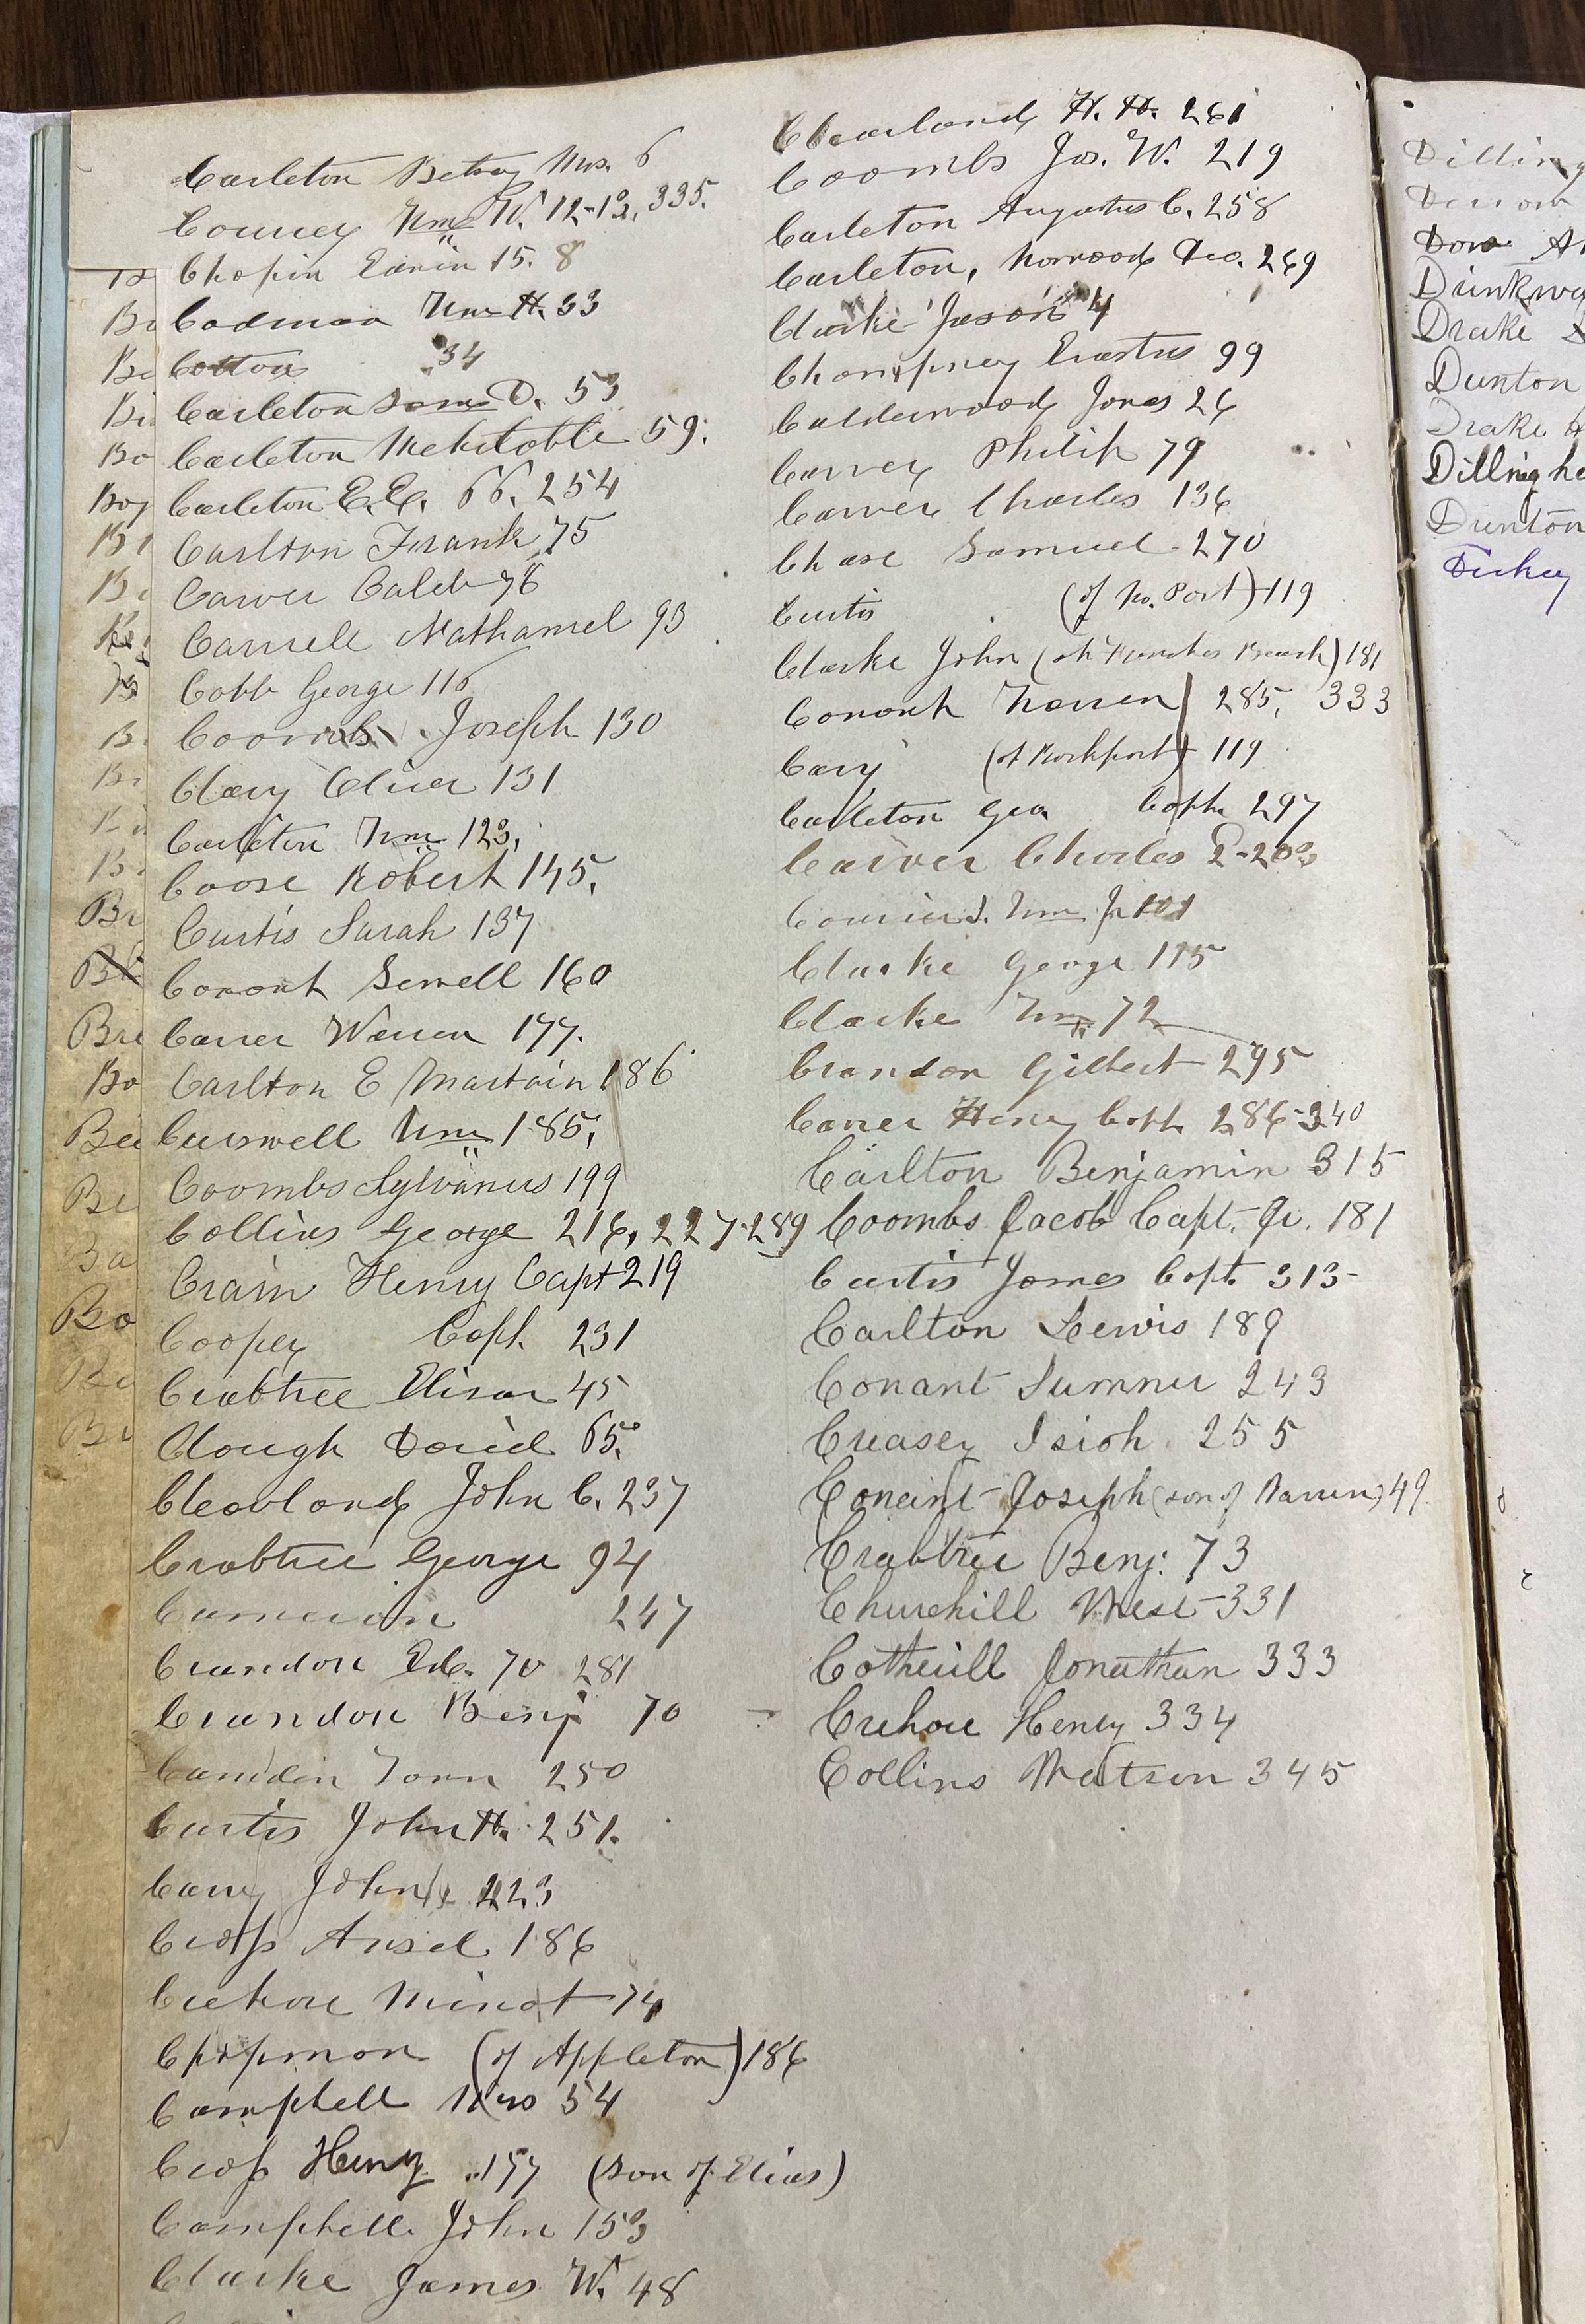 Carleton Betsey Mrs. 6
Conney Wm W. 12-13, 335.
Chopin Edwin 15. 8
Codman Wm H. 33
Cottons 34
Carleton Saml D. 53
Carleton Mehitoble 59.
Carleton E. E. 66. 254
Carlton Frank 75
Carver Caleb 76
Carrell Nathaniel 93
Cobb George 116
Coombs Joseph 130
Clary Oliver 131
Carleton Wm 123.
Coose Robert 145.
Curtis Sarah 137
Conant Sewell 160
Carver Warren 177.
Carlton E Martain 186
Curswell Wm 185.
Coombs Sylvanus 199
Collins George 216, 227-289
Crain Henry Capt 219
Cooper Capt. 231
Crabtree Elisar 45
Clough David 65.
Cleavland John C. 237
Crabtree George 94
Cameron 247
Crandon 70 281
Crandon Benj 70
Camden Town 250
Curtis John H. 251.
Cary John 223
Cross Ansel 186
Crehore Minot 74
Chapman (of Appleton) 186
Campbell Mrs 54
Cross Henry 157 (son of Elias)
Campbell John 153
Clarke James W. 48
Cleavland H. H. 261
Coombs Jos. W. 219
Carleton Augustus C. 258
Carleton, Norwood Geo. 269
Clarke Jason 4
Champney Erastus 99
Calderwood Jones 26
Carvey Philip 79
Carver Charles 136
Chase Samuel 270
Curtis (of No. Port) 119
Clarke John (of Beach) 181
Conant Warren 285, 333
Cary (of Rockport) 119
Carleton Geo Capt. 297
Carver Charles 2-203
Wm Jr 101
Clarke George 115
Clarke Wm 72
Crandon Gilbert 295
Carver Henry Capt. 286-340
Carlton Benjamin 315
Coombs Jacob Capt. Jr. 181
Curtis James Capt. 313
Carlton Lewis 189
Conant Sumner 243
Creasey Isioh 255
Conant Joseph (son of Warren) 49.
Crabtree Benj. 73
Churchill West 331
Cotherill Jonathan 333
Crehore Henry 334
Collins Watson 345
Dilling
Dow
Drinkwa
Drake
Dunton
Drake
Dillingha
Dunton
Dickey